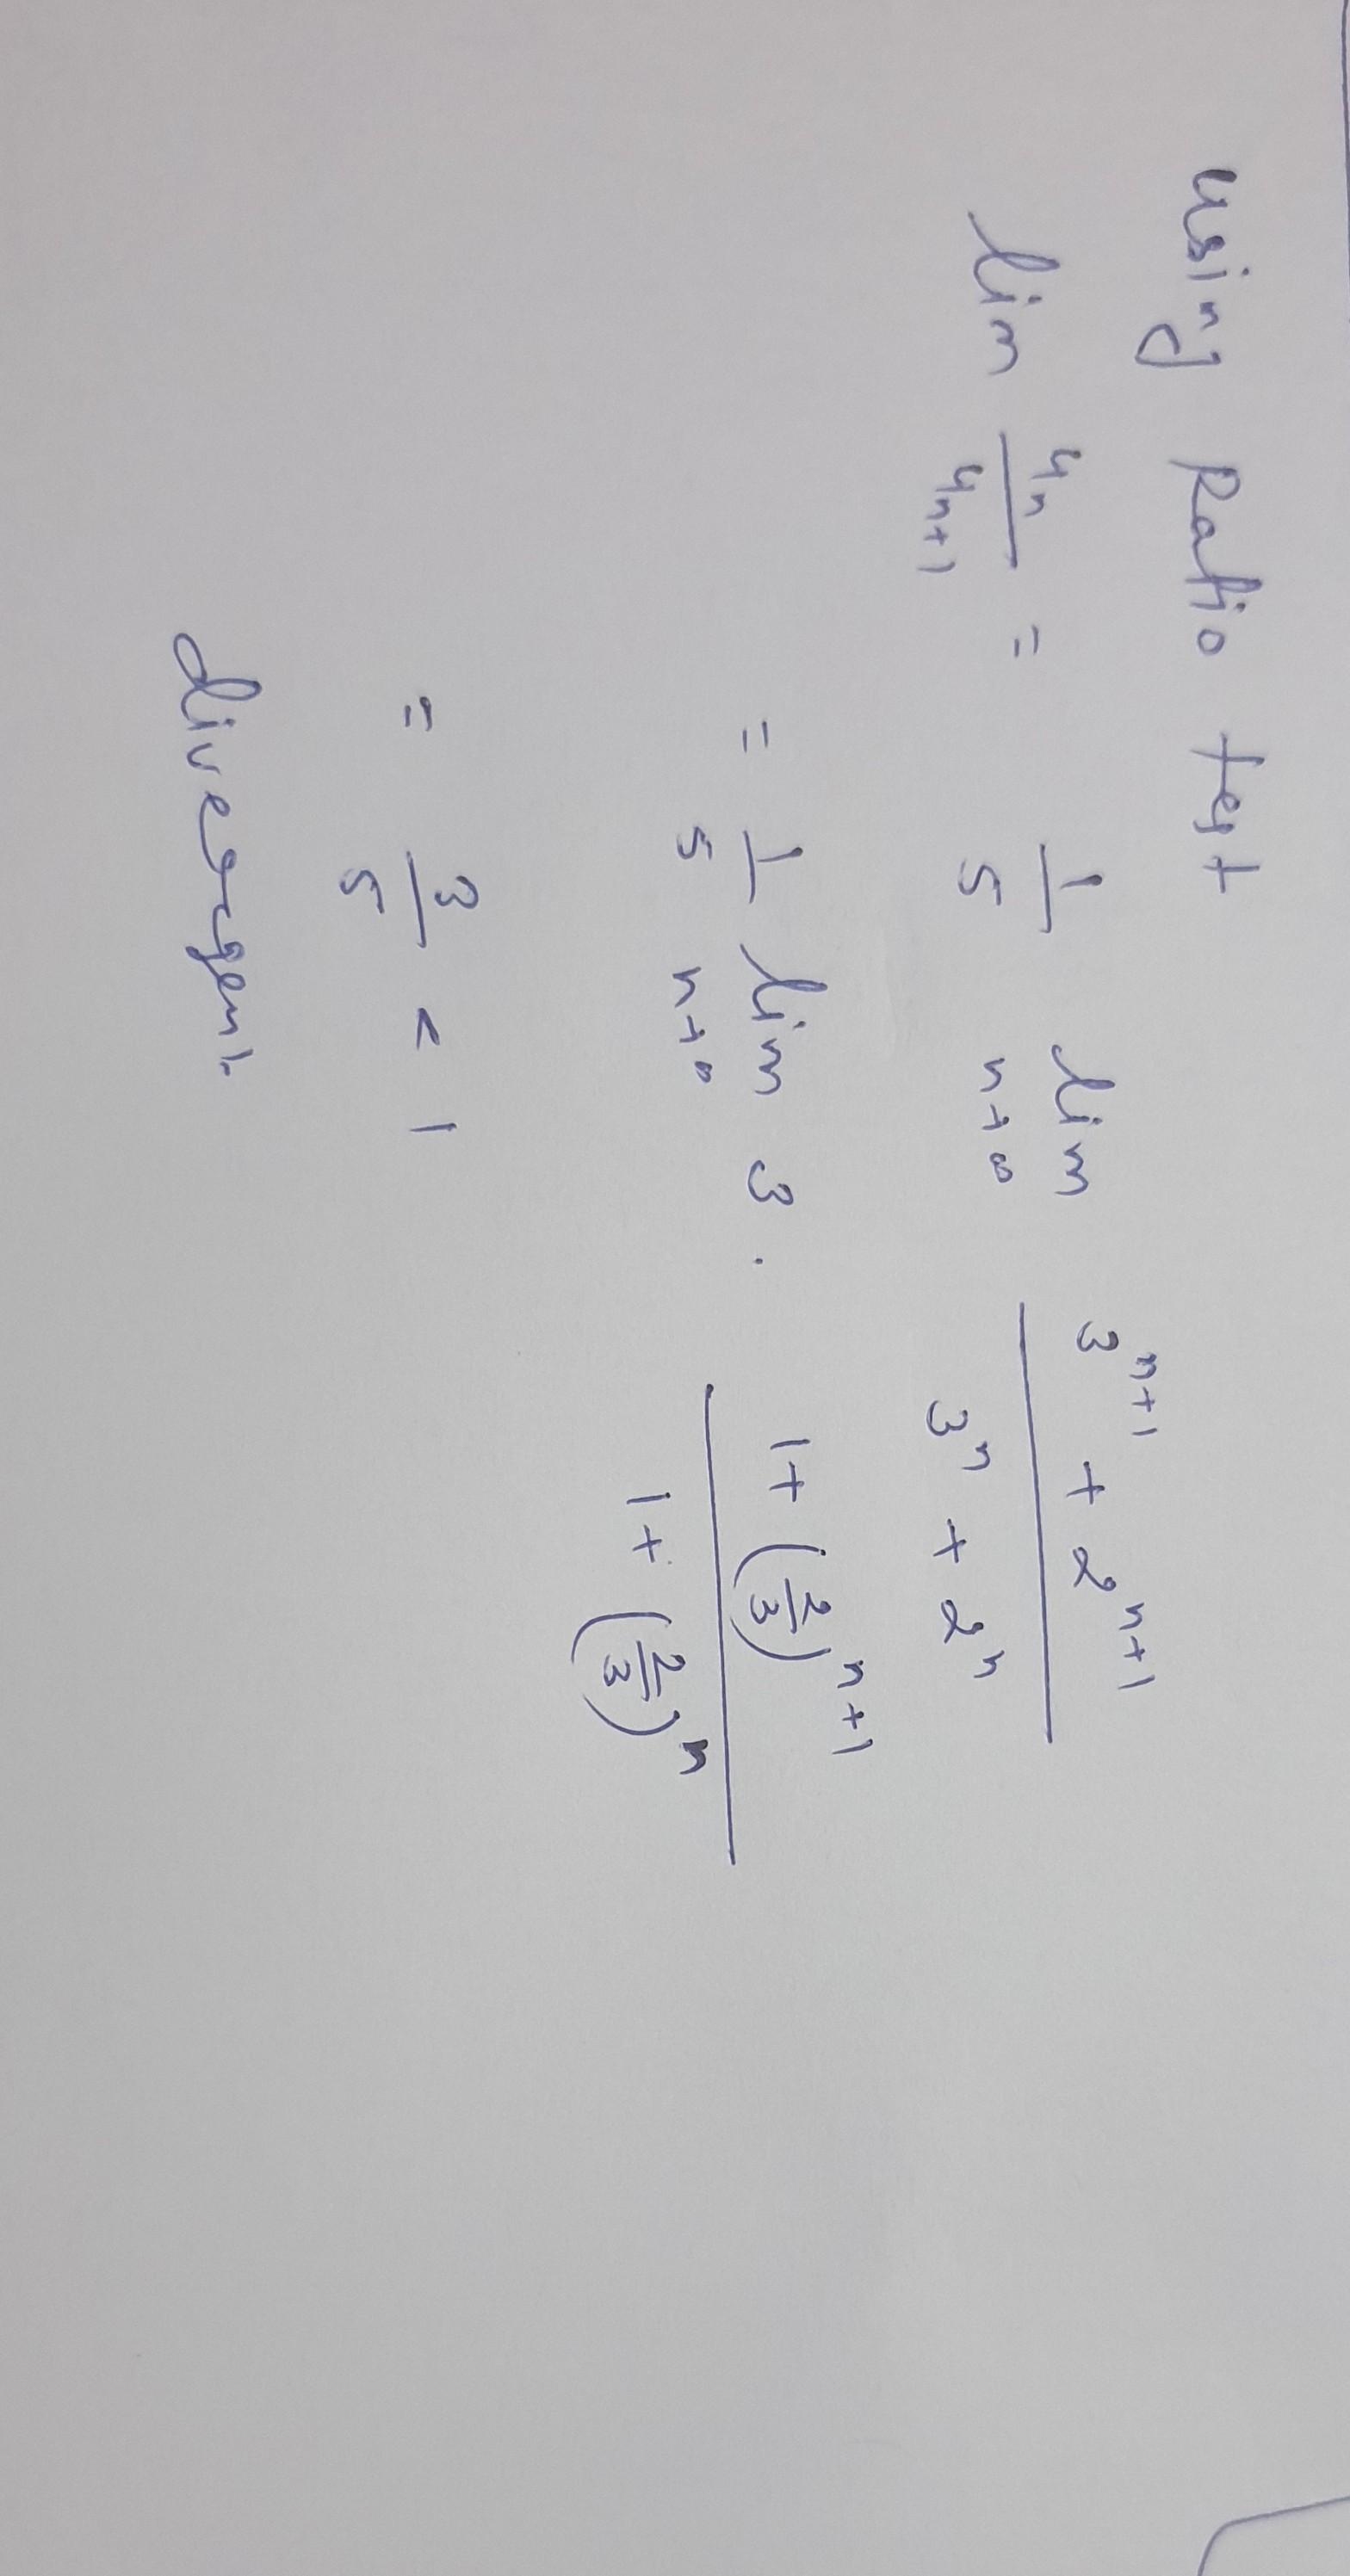 using Ratio test
lim u_n / u_{n+1} = 1/5 lim_{n→∞} (3^{n+1} + 2^{n+1}) / (3^n + 2^n)
= 1/5 lim_{n→∞} 3 · (1 + (2/3)^{n+1}) / (1 + (2/3)^n)
= 3/5 < 1
divergent.